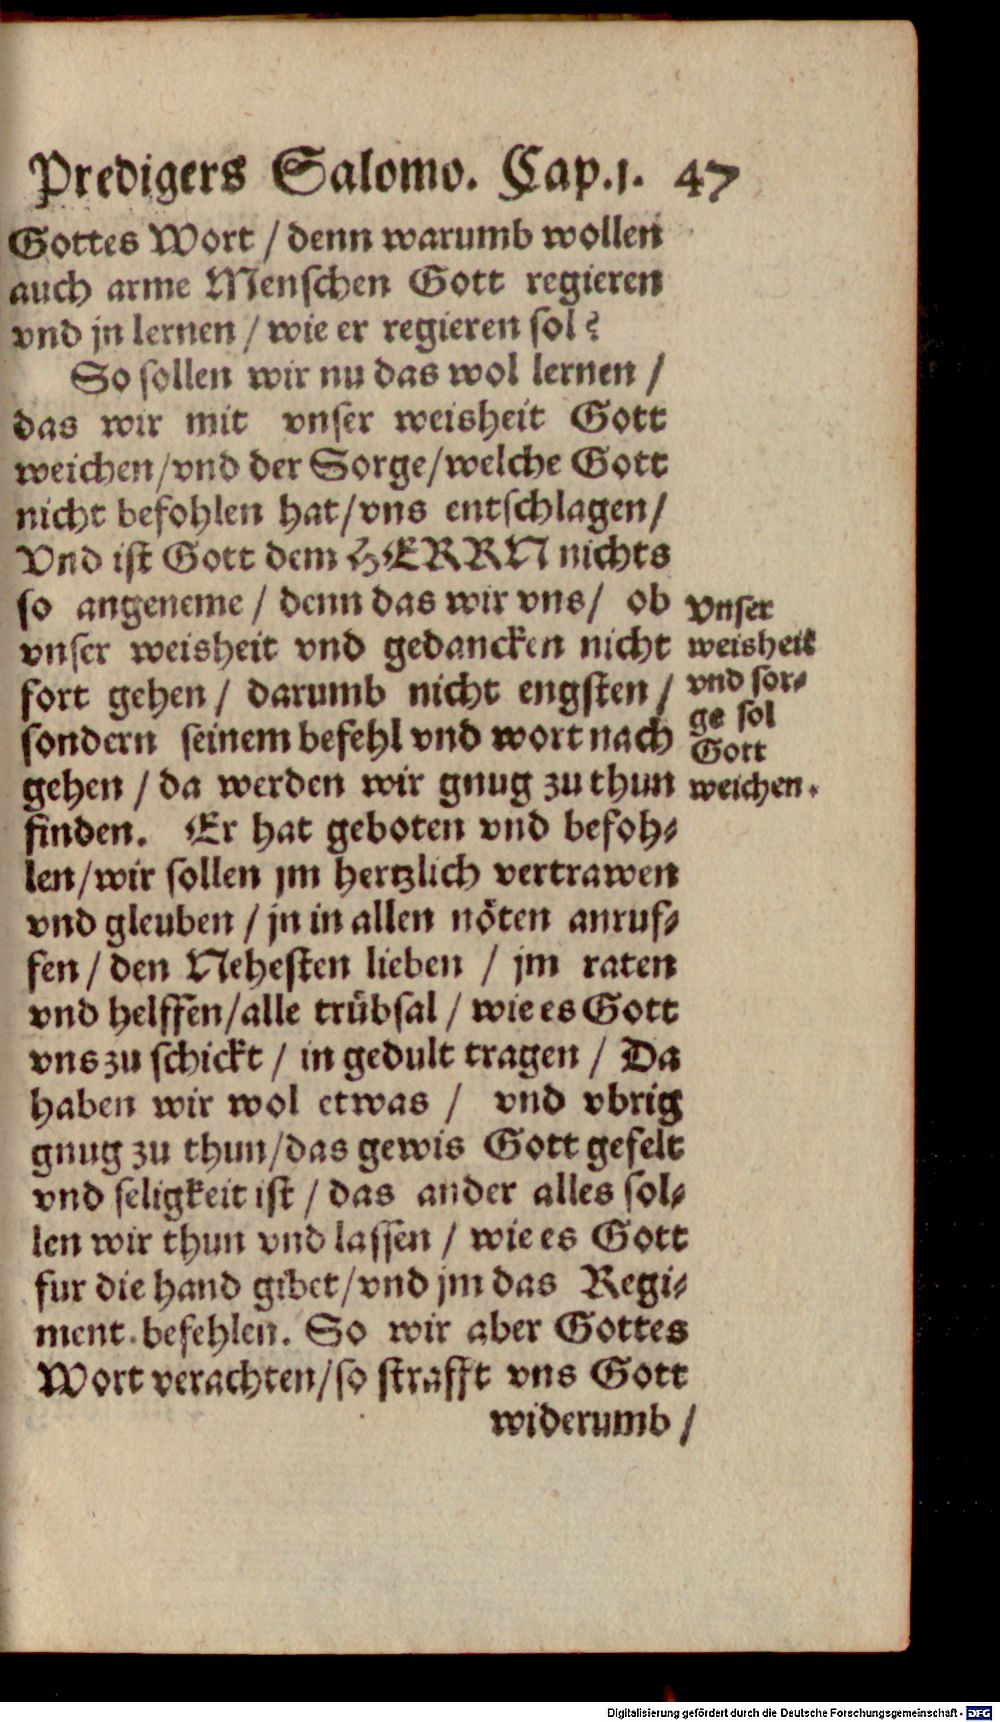 Predigers Salomo. Cap.1. 47
Gottes Wort / denn warumb wollen
auch arme Menschen Gott regieren
vnd jn lernen / wie er regieren sol?
So sollen wir nu das wol lernen /
das wir mit vnser weisheit Gott
weichen/vnd der Sorge/welche Gott
nicht befohlen hat/vns entschlagen/
Vnd ist Gott dem HERRN nichts
so angeneme / denn das wir vns/ ob
vnser weisheit vnd gedancken nicht
fort gehen / darumb nicht engsten /
sondern seinem befehl vnd wort nach
gehen / da werden wir gnug zu thun
finden. Er hat geboten vnd befoh-
len/wir sollen jm hertzlich vertrawen
vnd gleuben / jn in allen nöten anruf-
fen / den Nehesten lieben / jm raten
vnd helffen/alle trübsal / wie es Gott
vns zu schickt / in gedult tragen / Da
haben wir wol etwas / vnd vbrig
gnug zu thun/das gewis Gott gefelt
vnd seligkeit ist / das ander alles sol-
len wir thun vnd lassen / wie es Gott
fur die hand gibet/vnd jm das Regi-
ment befehlen. So wir aber Gottes
Wort verachten/so strafft vns Gott
widerumb /
Vnser
weisheit
vnd sor-
ge sol
Gott
weichen.
Digitalisierung gefördert durch die Deutsche Forschungsgemeinschaft - DFG